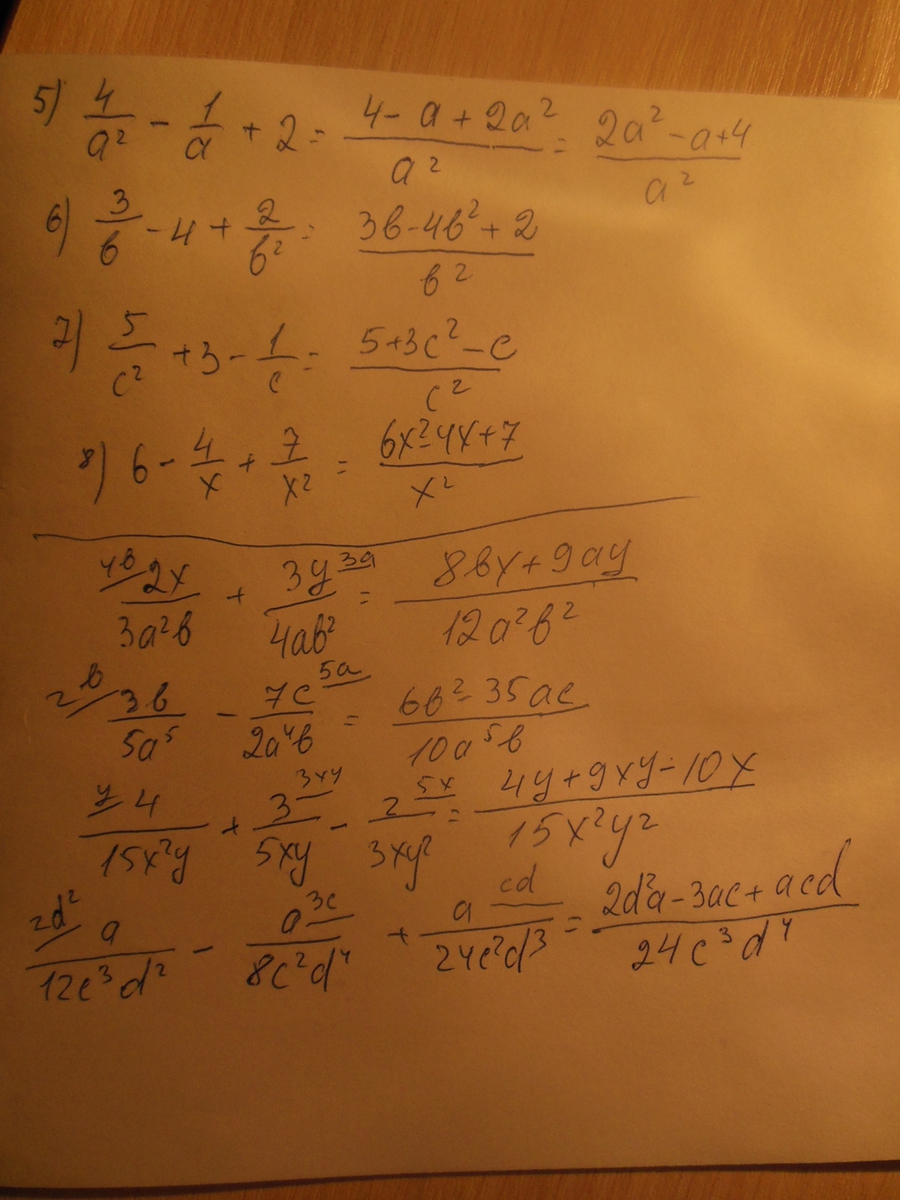 5) 4/a² - 1/a + 2 = (4 - a + 2a²)/a² = (2a² - a + 4)/a²
6) 3/в - 4 + 2/в² = (3в - 4в² + 2)/в²
7) 5/c² + 3 - 1/c = (5 + 3c² - c)/c²
8) 6 - 4/x + 7/x² = (6x² - 4x + 7)/x²
4в/ 2x/3a²в + 3y/4aв² /3a = (8вx + 9ay)/12a²в²
2в/ 3в/5a⁵ - 7c/2a⁴в /5a = (6в² - 35ac)/10a⁵в
y/ 4/15x²y + 3/5xy /3xy - 2/3xy² /5x = (4y + 9xy - 10x)/15x²y²
2d²/ a/12c³d² - a/8c²d⁴ /3c + a/24c²d³ /cd = (2d²a - 3ac + acd)/24c³d⁴